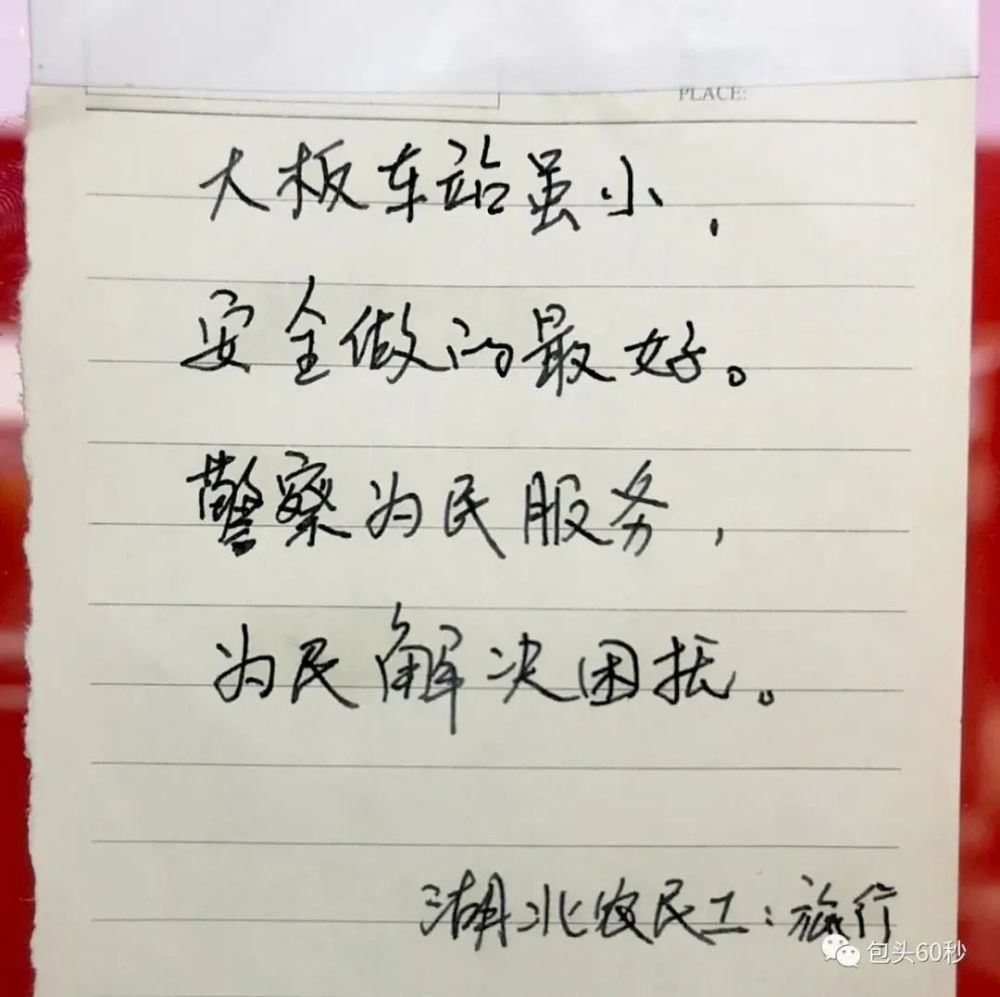 PLACE:
大板车站虽小,
安全做的最好。
警察为民服务,
为民解决困扰。
湖北农民工:旅行
包头60秒